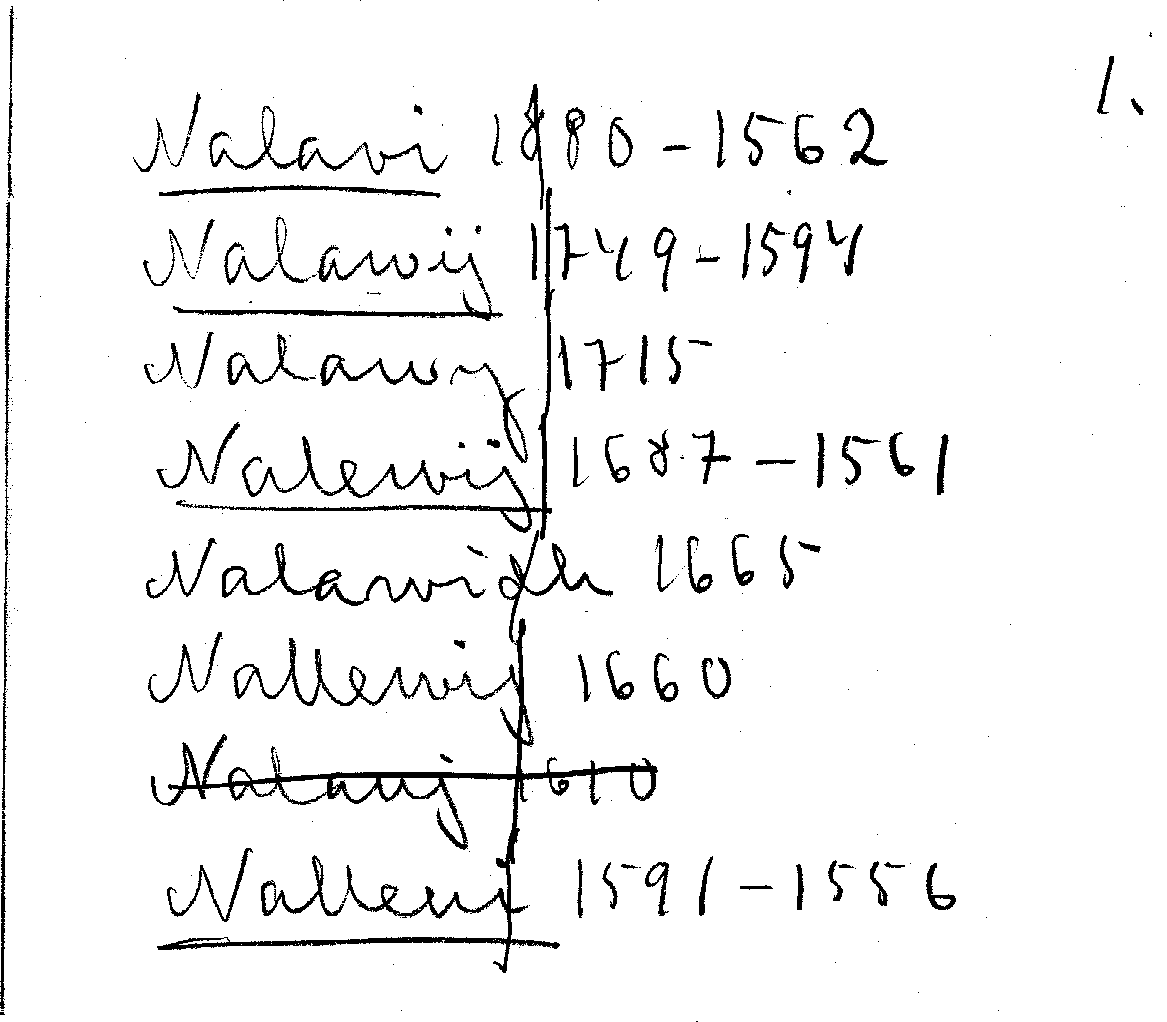 1.
Nalavi 1880 - 1562
Nalawij 1749 - 1594
Nalawy 1715
Nalewij 1687 - 1561
Nalawidh 1665
Nallewij 1660
Nalauij 1610
Nalleui 1591 - 1556